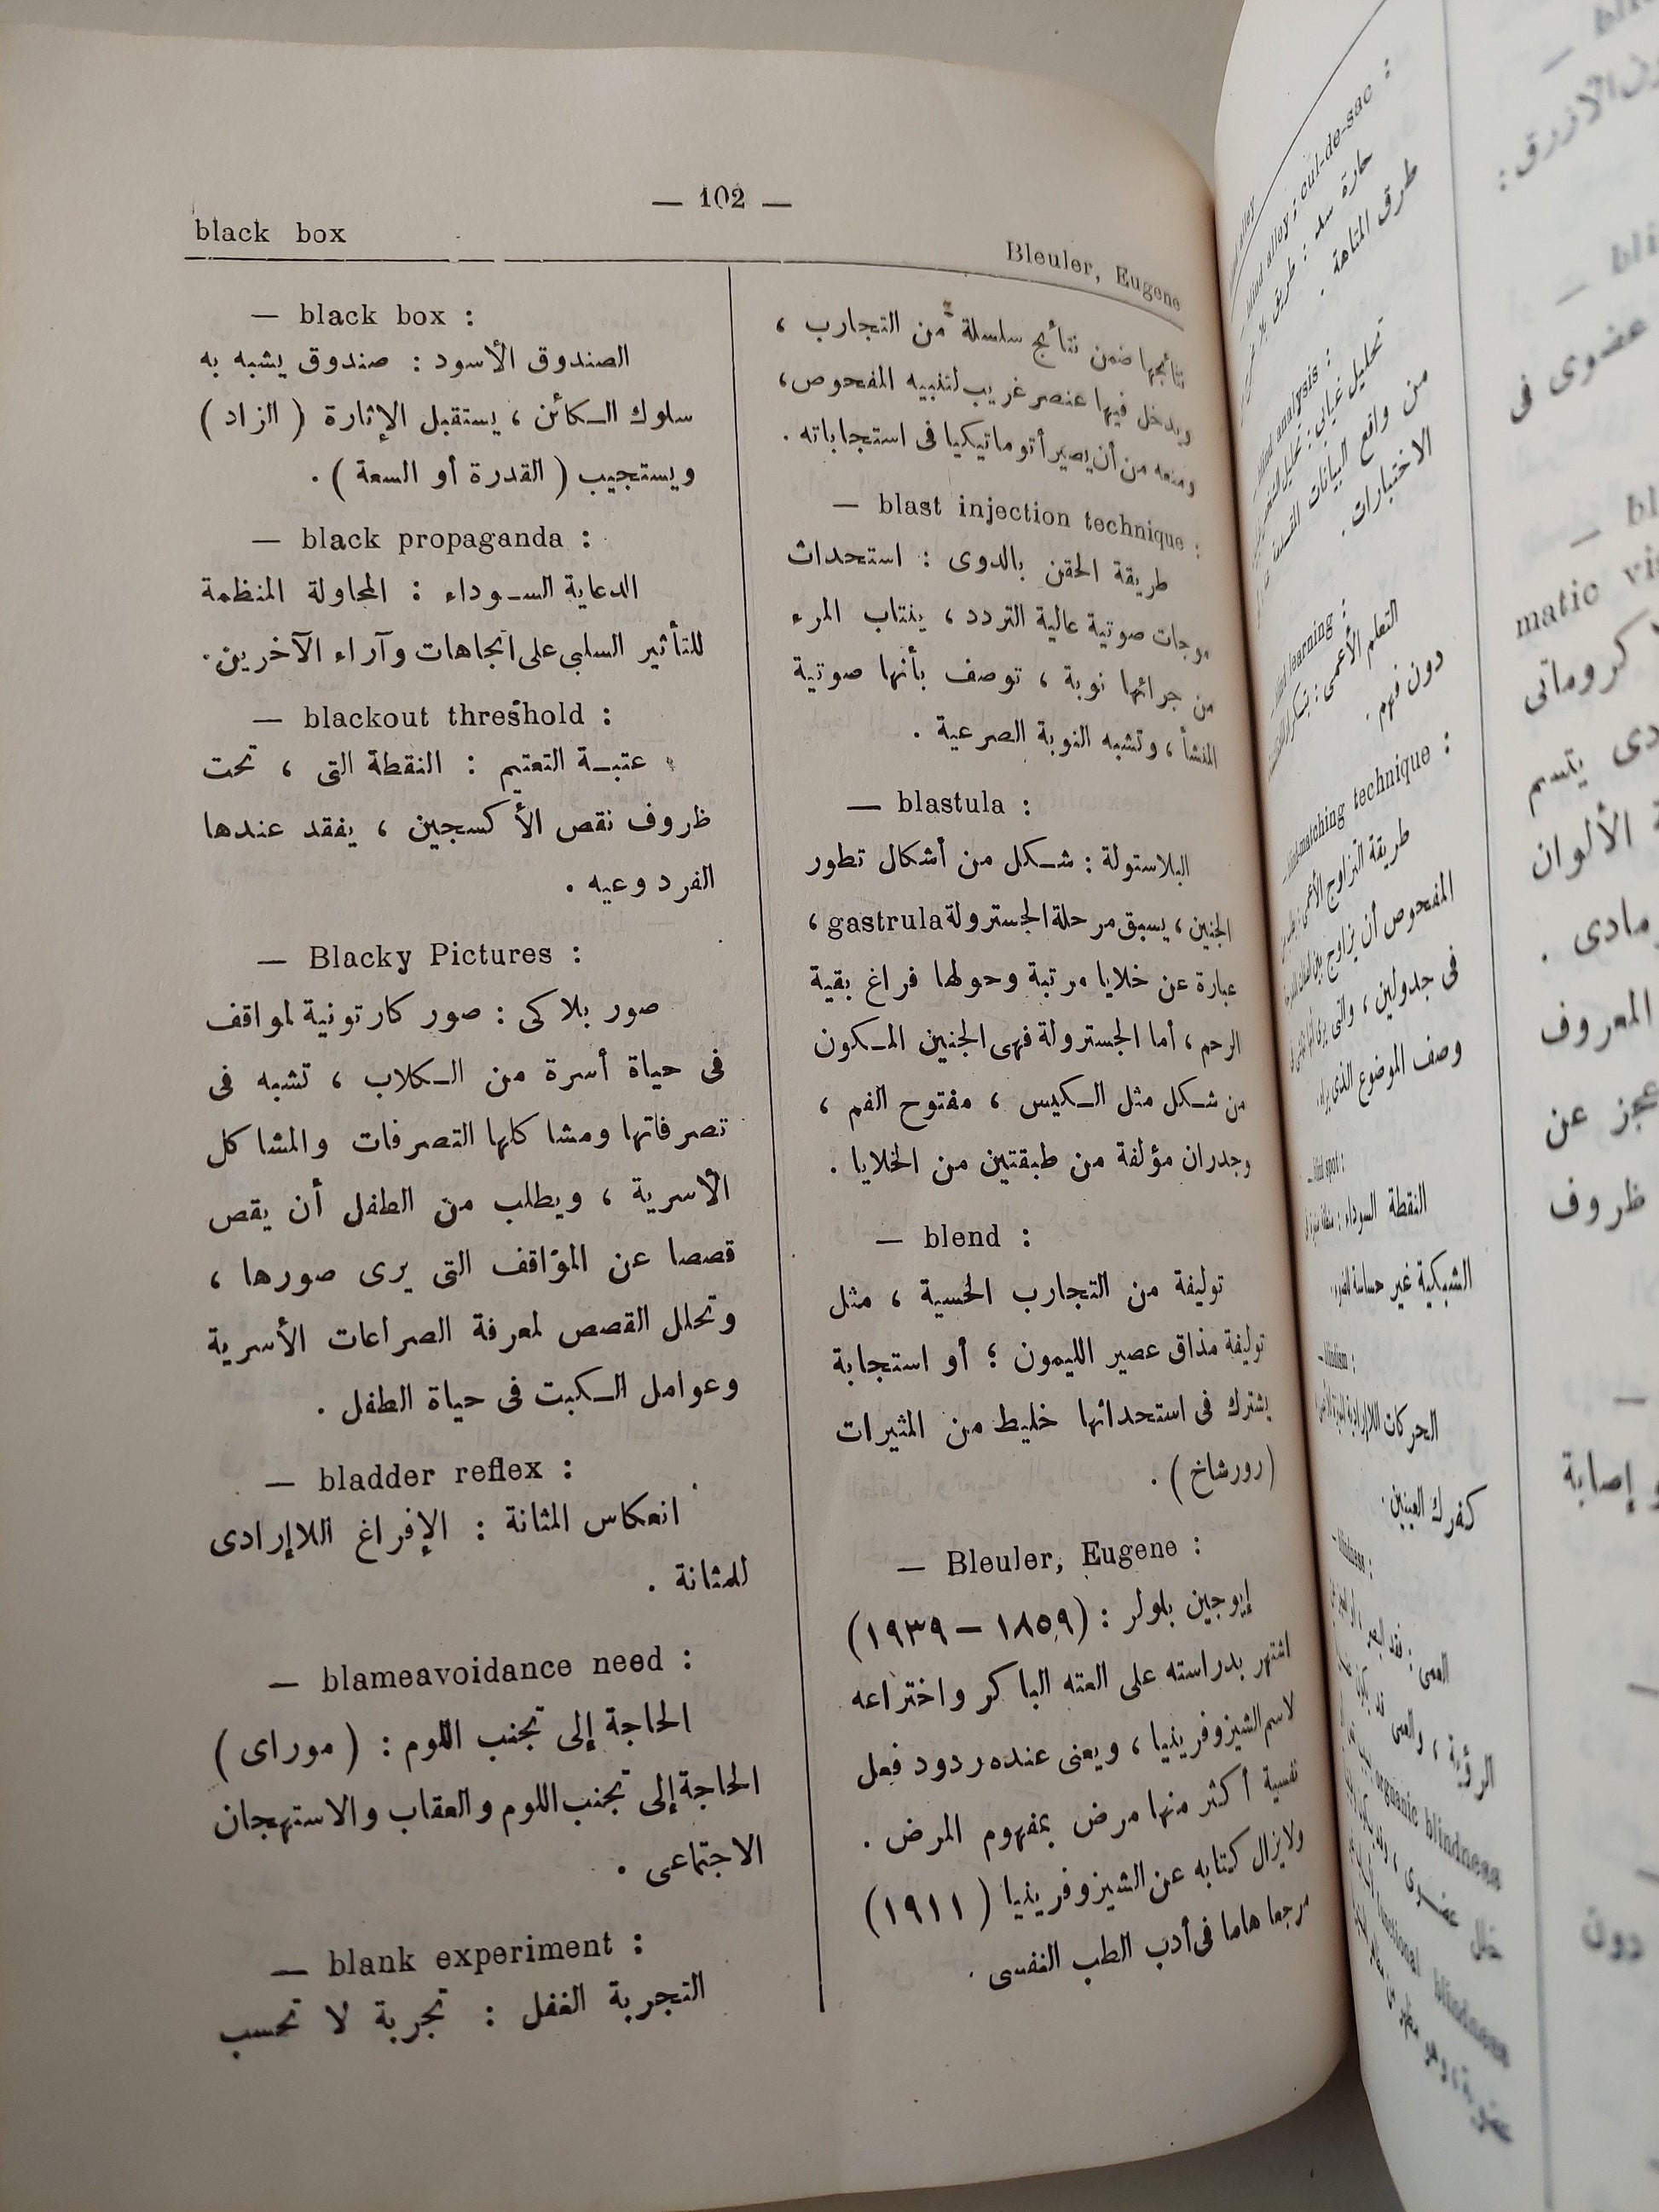 — 102 —
black box
Bleuler, Eugene
— black box :
الصندوق الأسود : صندوق يشبه به
سلوك الكائن ، يستقبل الإثارة ( الزاد )
ويستجيب ( القدرة أو السعة ) .
— black propaganda :
الدعاية السوداء : المحاولة المنظمة
للتأثير السلبى على اتجاهات وآراء الآخرين .
— blackout threshold :
عتبة التعتيم : النقطة التى ، تحت
ظروف نقص الأكسجين ، يفقد عندها
الفرد وعيه .
— Blacky Pictures :
صور بلاكى : صور كارتونية لمواقف
فى حياة أسرة من الكلاب ، تشبه فى
تصرفاتها ومشاكلها التصرفات والمشاكل
الأسرية ، ويطلب من الطفل أن يقص
قصصا عن المواقف التى يرى صورها ،
وتحلل القصص لمعرفة الصراعات الأسرية
وعوامل الكبت فى حياة الطفل .
— bladder reflex :
انعكاس المثانة : الإفراغ اللاإرادى
للمثانة .
— blameavoidance need :
الحاجة إلى تجنب اللوم : ( موراى )
الحاجة إلى تجنب اللوم والعقاب والاستهجان
الاجتماعى .
— blank experiment :
التجربة الغفل : تجربة لا تحسب
نتائجها ضمن نتائج سلسلة من التجارب ،
ويدخل فيها عنصر غريب لتنبيه المفحوص ،
ومنعه من أن يصير أتوماتيكيا فى استجاباته .
— blast injection technique :
طريقة الحقن بالدوى : استحداث
موجات صوتية عالية التردد ، ينتاب المرء
من جرائها نوبة ، توصف بأنها صوتية
المنشأ ، وتشبه النوبة الصرعية .
— blastula :
البلاستولة : شكل من أشكال تطور
الجنين ، يسبق مرحلة الجسترولة gastrula ،
عبارة عن خلايا مرتبة وحولها فراغ بقية
الرحم ، أما الجسترولة فهى الجنين المكون
من شكل مثل الكيس ، مفتوح الفم ،
وجدران مؤلفة من طبقتين من الخلايا .
— blend :
توليفة من التجارب الحسية ، مثل
توليفة مذاق عصير الليمون ؛ أو استجابة
يشترك فى استحداثها خليط من المثيرات
( رورشاخ ) .
— Bleuler, Eugene :
إيوجين بلولر : ( ١٨٥٩ – ١٩٣٩ )
اشتهر بدراسته على العته الباكر واختراعه
لاسم الشيزوفرينيا ، ويعنى عنده ردود فعل
نفسية أكثر منها مرض بمفهوم المرض .
ولا يزال كتابه عن الشيزوفرينيا ( ١٩١١ )
مرجعا هاما فى أدب الطب النفسى .
— blind alley ; cul-de-sac :
حارة سد : طريق
طرق المتاهة .
blind analysis :
تحليل غيابى :
من واقع البيانات
الاختبارات .
blind learning :
التعلم الأعمى :
دون فهم .
— blind-matching technique :
طريقة التزاوج الأعمى :
المفحوص أن يزاوج بين
فى جدولين ، والتى
وصف الموضوع الذى
— blind spot :
النقطة السوداء :
الشبكية غير حساسة للضوء .
— blindism :
الحركات اللاإرادية
كفرك العينين .
— blindness :
العمى : فقد البصر
الرؤية ، والعمى قد يكون
organic blindness
خلل عضوى ،
functional blindness
عضوى فى
matic
كروماتى
يتسم
الألوان
المعروف
عجز عن
ظروف
إصابة
دون